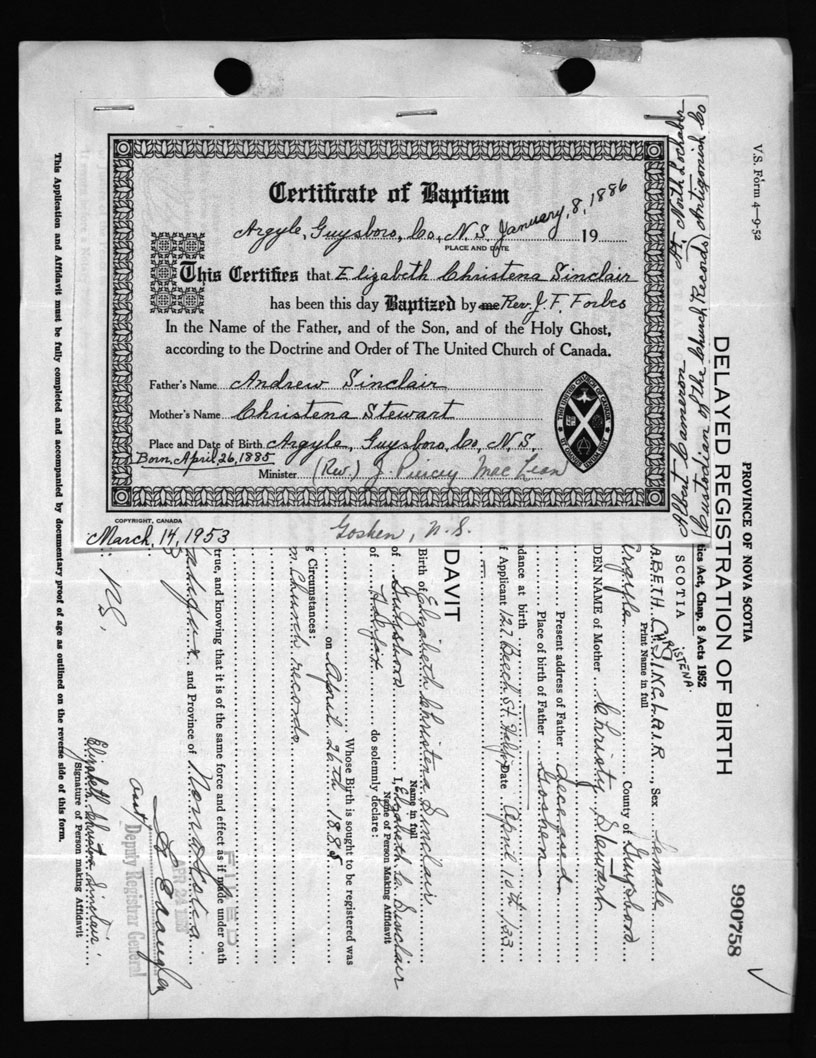 Certificate of Baptism
Argyle, Guysboro, Co, N.S. January, 8, 1886 19
PLACE AND DATE
This Certifies that Elizabeth Christena Sinclair
has been this day Baptized by me Rev. J. F. Forbes
In the Name of the Father, and of the Son, and of the Holy Ghost,
according to the Doctrine and Order of The United Church of Canada.
Father's Name Andrew Sinclair
Mother's Name Christena Stewart
Place and Date of Birth Argyle, Guysboro, Co, N.S.
Born, April 26, 1885
Minister (Rev.) J. Piercey MacLean
COPYRIGHT, CANADA
March, 14, 1953
Goshen, N.S.
V.S. Form 4-9-52
PROVINCE OF NOVA SCOTIA
DELAYED REGISTRATION OF BIRTH
990758
ties Act, Chap. 8 Acts 1952
SCOTIA
ABETH. CHRISTENA. SINCLAIR Sex Female
Print Name in full
Argyle County of Guysboro
DEN NAME of Mother Christy Stewart
Present address of Father deceased
Place of birth of Father Goshen
ndance at birth
f Applicant 127 Beech St. Hfx Date April 10th/53
DAVIT
Birth of Elizabeth Christena Sinclair
Name in full
of Guysboro I, Elizabeth C. Sinclair
Name of Person Making Affidavit
of Halifax do solemnly declare:
Whose Birth is sought to be registered was
on April 26th 1885
g Circumstances:
m Church records
true, and knowing that it is of the same force and effect as if made under oath
FILED
Halifax and Province of Nova Scotia
Deputy Registrar General
N.S.
Elizabeth Christena Sinclair
Signature of Person making Affidavit
This Application and Affidavit must be fully completed and accompanied by documentary proof of age as outlined on the reverse side of this form.